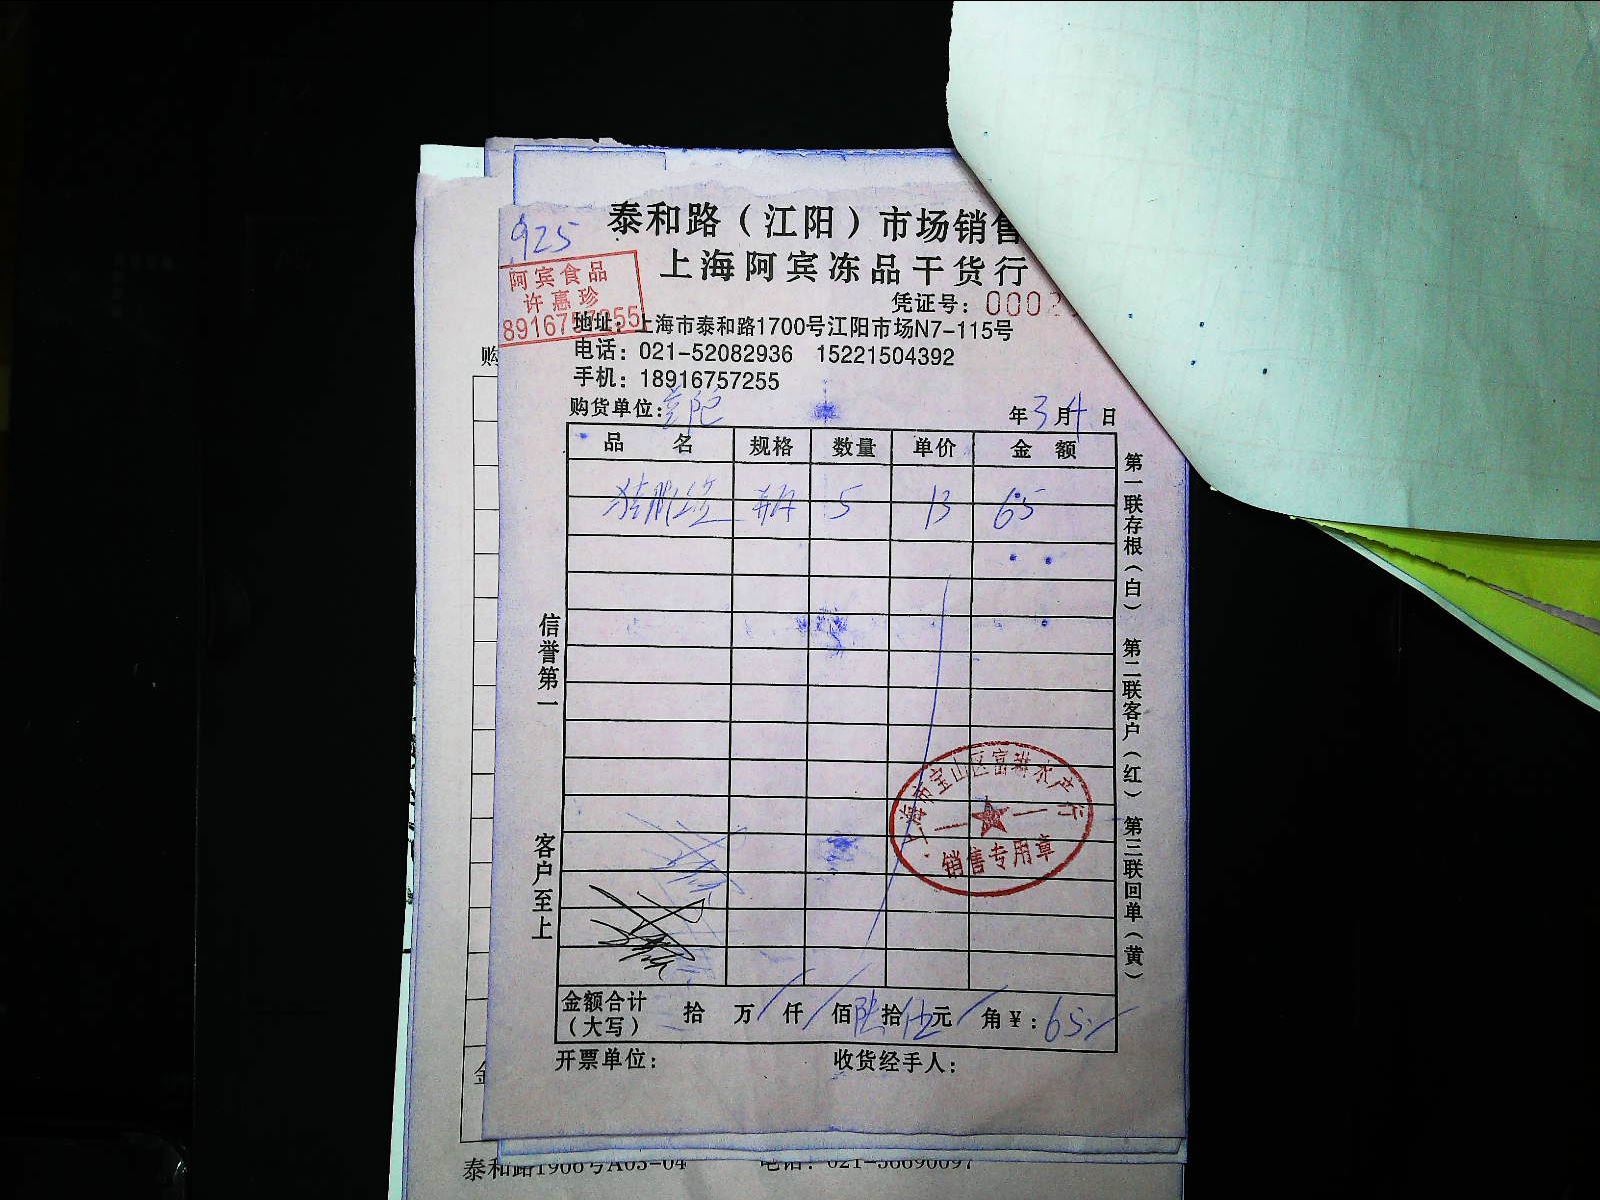 925
泰和路（江阳）市场销售
上海阿宾冻品干货行
阿宾食品
许惠珍
8916757255
凭证号：0002
地址：上海市泰和路1700号江阳市场N7-115号
电话：021-52082936 15221504392
手机：18916757255
购
购货单位：
年3月4日
品名 规格 数量 单价 金额
5 13 65
信誉第一
客户至上
第一联存根（白） 第二联客户（红） 第三联回单（黄）
上海市宝山区富琳水产行
销售专用章
金额合计（大写） 拾 万 仟 佰陆拾伍元 角￥：65
开票单位： 收货经手人：
金
泰和路1908号A03-04 电话：021-56690097